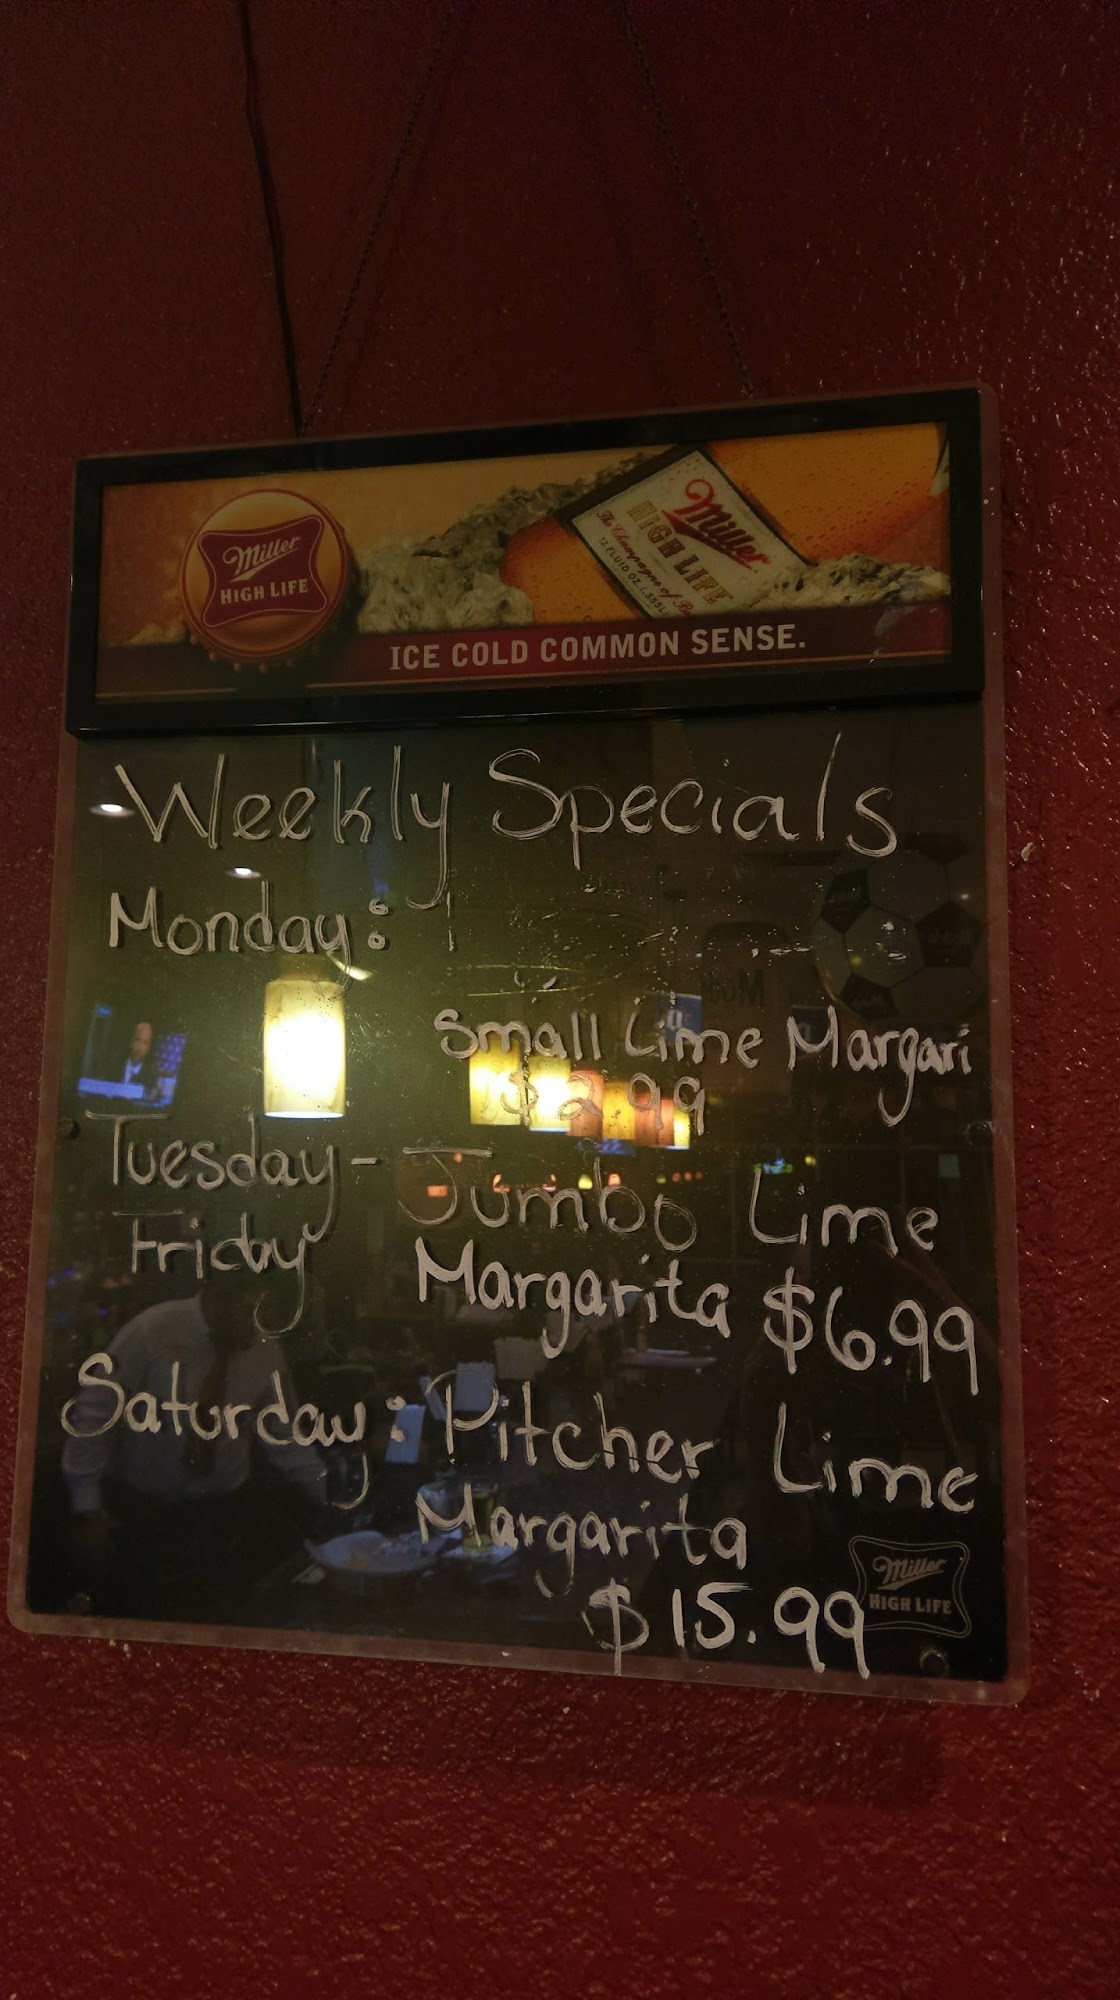 Miller
HIGH LIFE
Miller
HIGH LIFE
The Champagne of
12 FLUID OZ.
ICE COLD COMMON SENSE.
Weekly Specials
Monday:
Small Lime Margari
$2.99
Tuesday - Jumbo Lime
Friday Margarita $6.99
Saturday: Pitcher Lime
Margarita
$15.99
Miller
HIGH LIFE